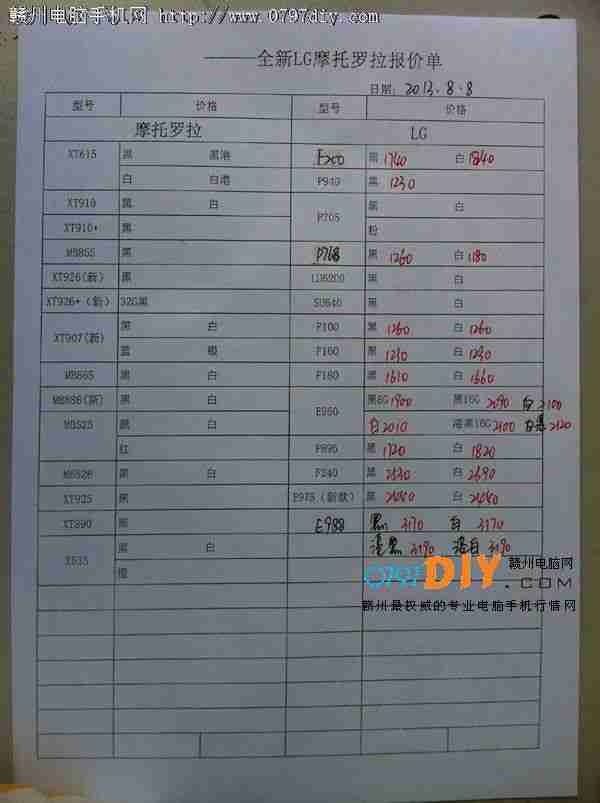 赣州电脑手机网 http://www.0797diy.com
———全新LG摩托罗拉报价单
日期: 2013.8.8
型号 价格 型号 价格
摩托罗拉 LG
XT615 黑 黑港 F200 黑 1740 白 1840
白 白港 P940 黑 1230
XT910 黑 白 P705 黑 白
XT910+ 黑 粉
MB855 黑 P768 黑 1260 白 1180
XT926(新) 黑 LU6200 黑 白
XT926+(新) 32G黑 SU640 黑 白
XT907(新) 黑 白 F100 黑 1260 白 1260
蓝 银 F160 黑
MB865 黑 白 F180 黑 1610 白 1660
MB886(新) 黑 白 E960 黑8G 1900 黑16G 2090 白 2100
白 2010 港黑16G 2100
红 黑 1720 白 1820
黑 白 F240 黑 白 2690
XT925 黑 黑 白
XT890 黑 E988 黑 3170 白 3170
黑 白 港黑 3190 港白 3190
橙
0797DIY.COM 赣州电脑网
赣州最权威的专业电脑手机行情网